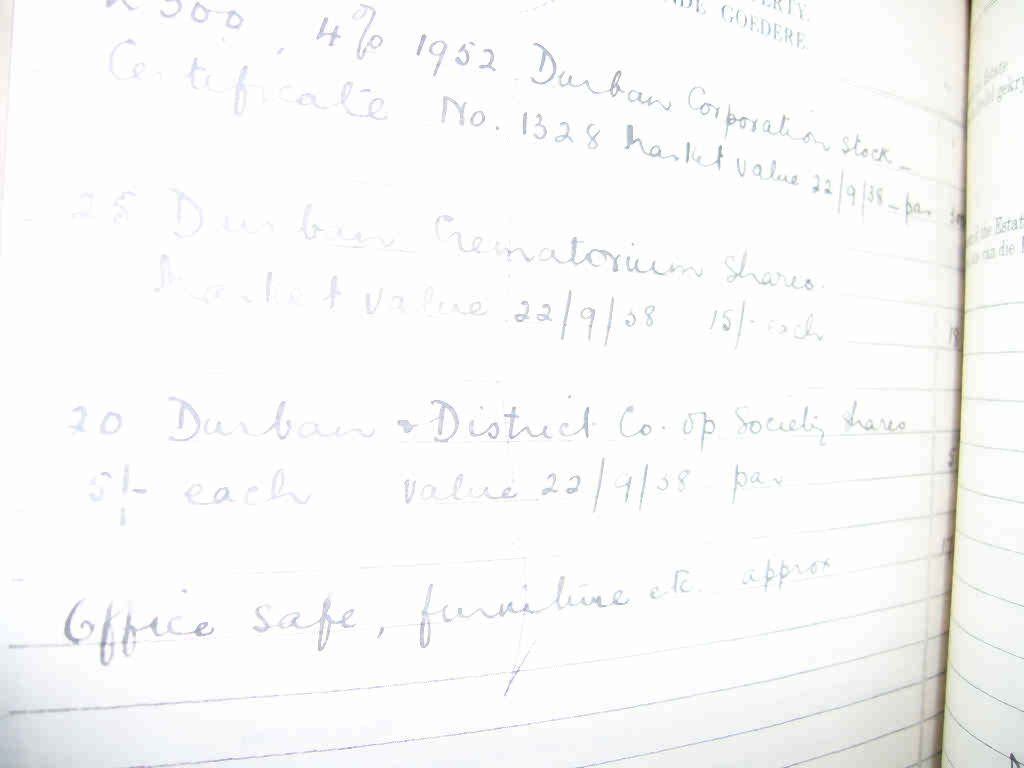 GOEDERE.
500, 4% 1952 Durban Corporation stock -
Certificate No. 1328 Market value 22/9/38 - par
25 Durban Crematorium shares.
Market value 22/9/38 15/- each
20 Durban & District Co-op Society shares
5/- each value 22/9/38 par
Office safe, furniture etc. approx